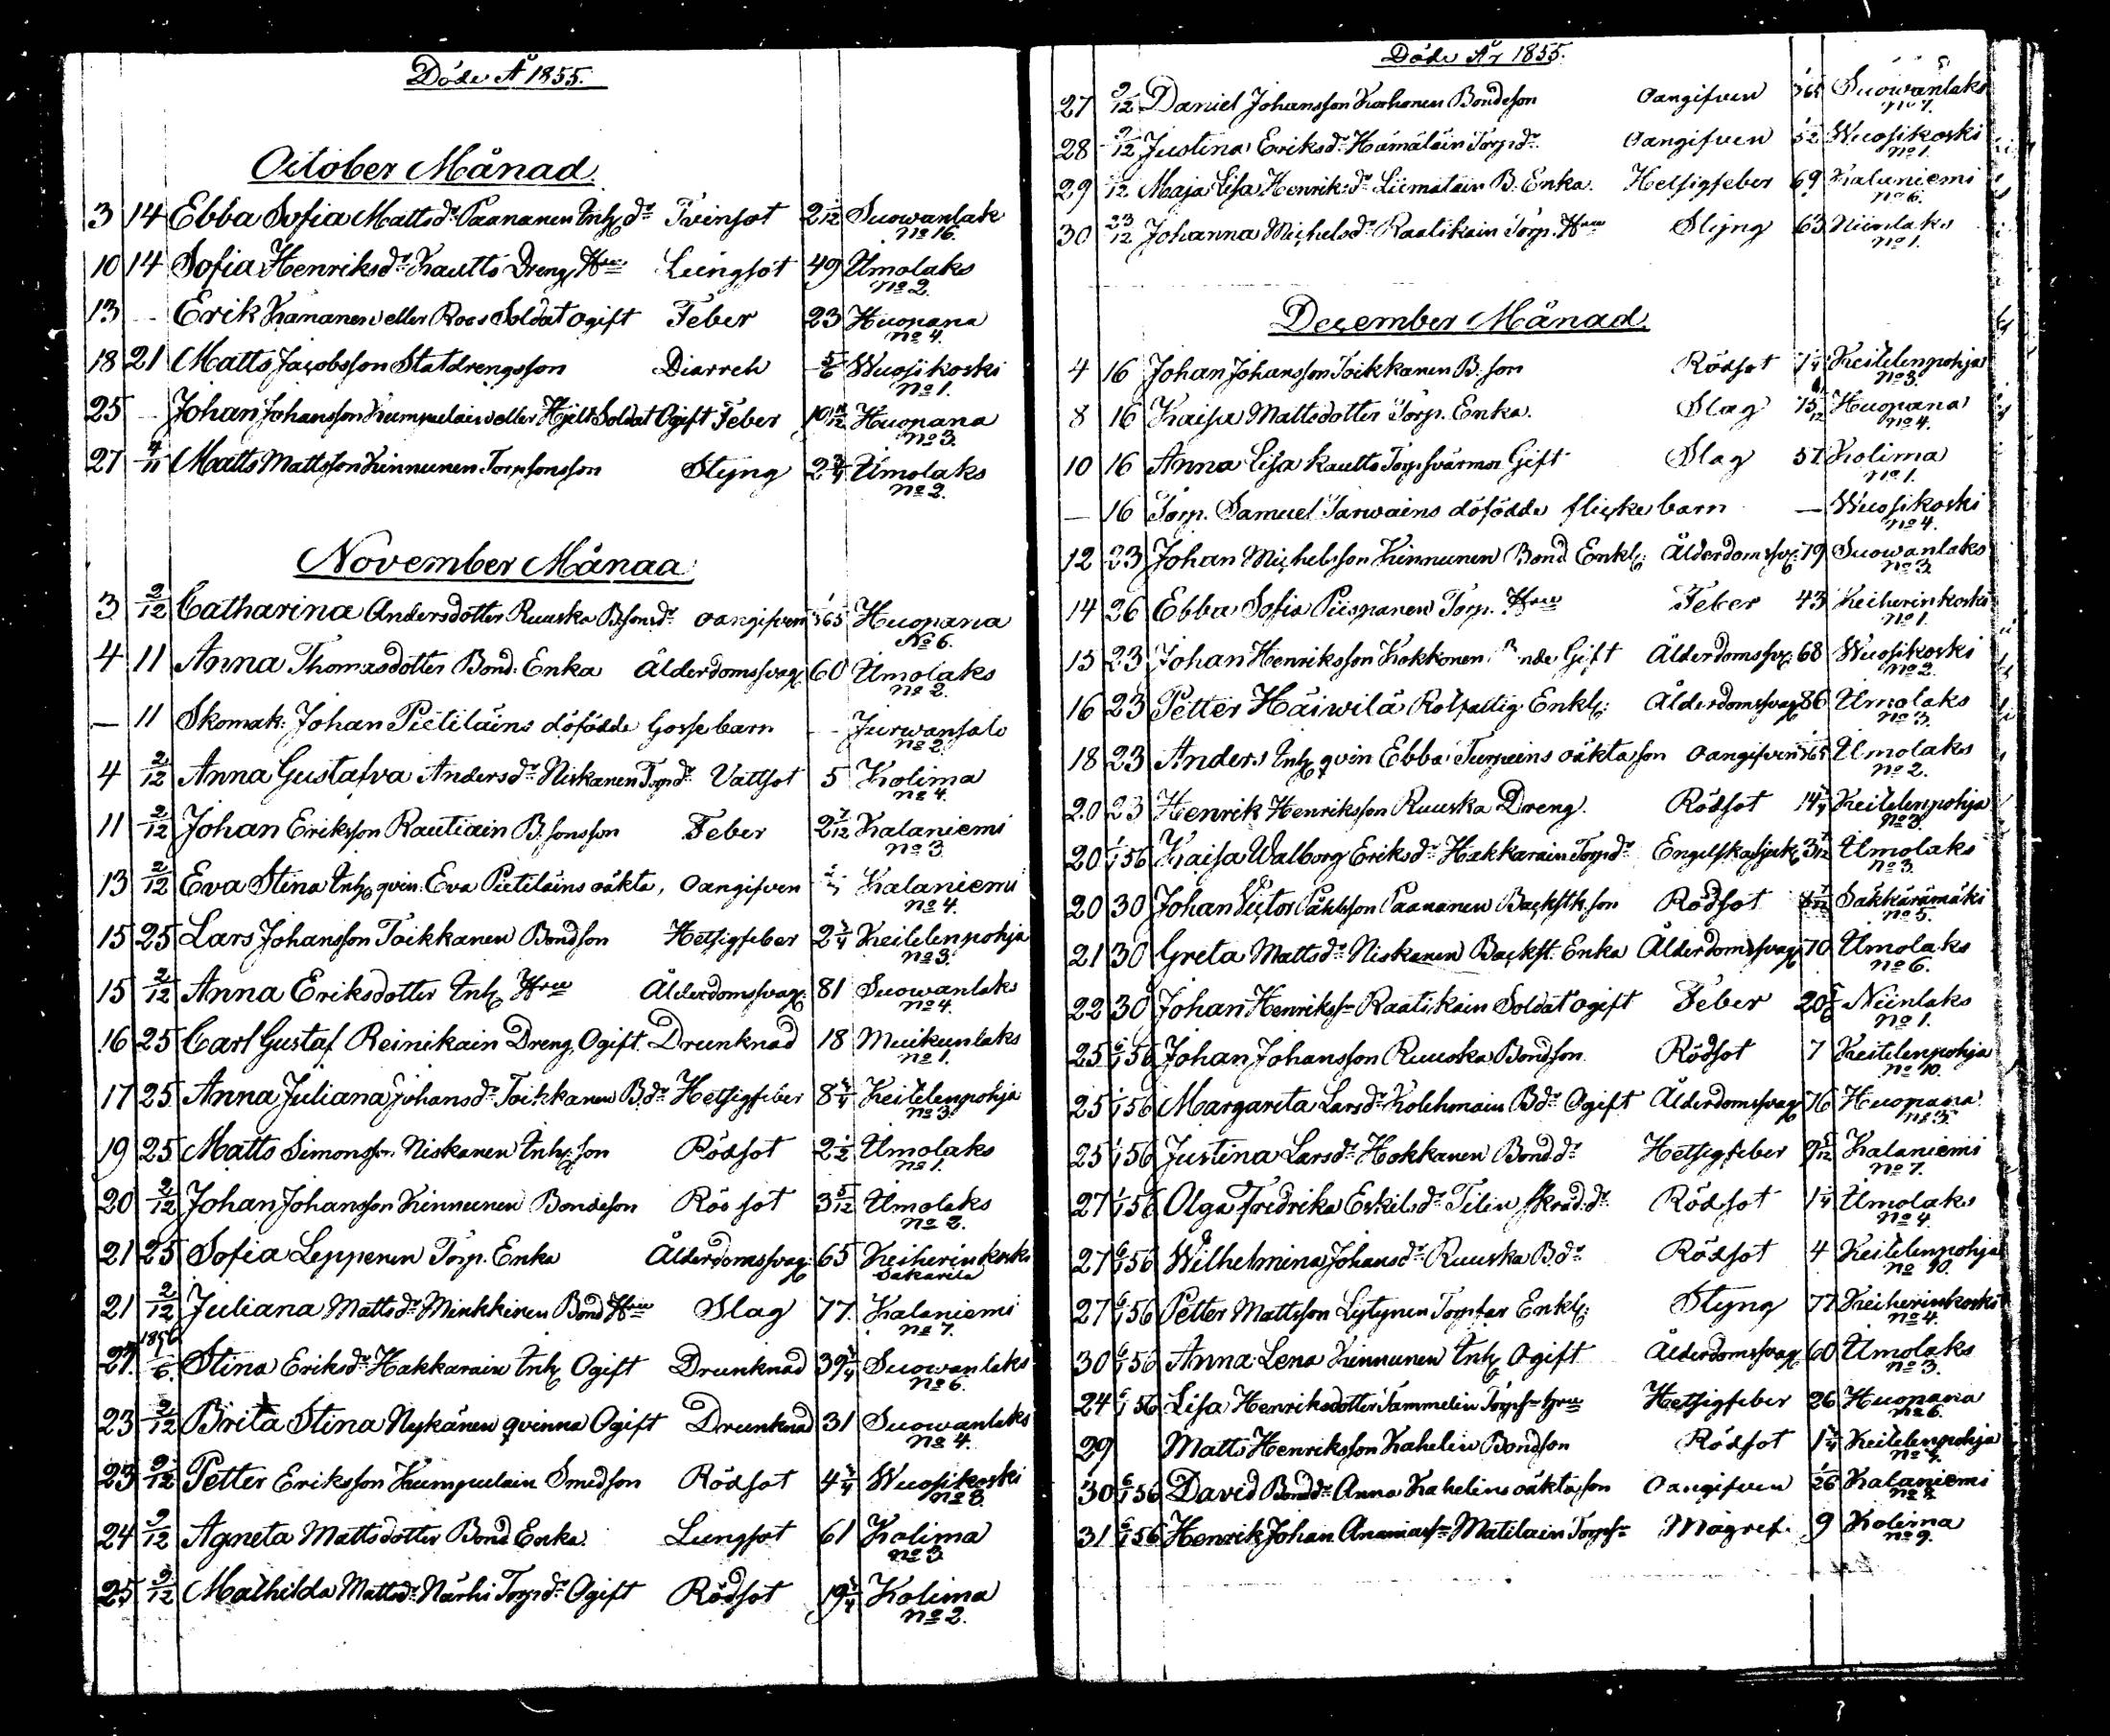 Döde År 1855.
October Månad.
3 14 Ebba Sofia Mattsdr Paananen Inh. dr Tvinsot 2 1/12 Suowanlak
No 16.
10 14 Sofia Henriksdr Kautto Dreng Hru Lungsot 49 Umolaks
No 2.
13 - Erik Kananen eller Roos Soldat ogift Feber 23 Huopana
No 4.
18 21 Matts Jacobsson Statdrengsson Diarreh 5/6 Wuosikoski
No 1.
25 - Johan Johansson Kumpulain eller Hjelt Soldat Ogift Feber Huopana
No 3.
27 4/11 Matts Mattsson Kinnunen Torpsonsson Styng 2 3/4 Umolaks
No 2.
November Månad
3 2/12 Catharina Andersdotter Ruuska B.sonsdr oangifven 1/365 Huopana
No 6.
4 11 Anna Thomasdotter Bond. Enka Ålderdomssvag. 60 Umolaks
No 2.
— 11 Skomak: Johan Pietiläins döfödde Gossebarn - Jurwansalo
No 2.
4 2/12 Anna Gustafva Andersdr Niskanen Torpdr Vattsot 5 Kolima
No 4.
11 2/12 Johan Eriksson Rautiain B.sonsson Feber 2 7/12 Kalaniemi
No 3.
13 2/12 Eva Stina Inh. qvin. Eva Pietiläins oäkta, oangifven Kalaniemi
No 4.
15 25 Lars Johansson Toikkanen Bondson Hetsigfeber 2 1/4 Keitelenpohja
No 3.
15 2/12 Anna Eriksdotter Inh. Hru Ålderdomssvag. 81 Suowanlaks
No 4.
16 25 Carl Gustaf Reinikain Dreng, Ogift. Drunknad 18 Muikunlaks
No 1.
17 25 Anna Juliana Johansdr Toikkanen B.dr Hetsigfeber 8 1/4 Keitelenpohja
No 3.
19 25 Matts Simonsson Niskanen Inh. son Rödsot 2 1/2 Umolaks
No 1.
20 2/12 Johan Johansson Kinnunen Bondeson Rödsot 3 5/12 Umolaks
No 2.
21 25 Sofia Lepponen Torp. Enka Ålderdomssvag. 65 Keiherinkoski
Sakarila
21 2/12 Juliana Mattsdr Minkkinen Bond Hru Slag 77 Kalaniemi
No 7.
27. 1856 1/6. Stina Eriksdr Hakkarain Inh. Ogift Drunknad 39 1/4 Suowanlaks
No 6.
23 2/12 Brita Stina Nykänen qvinna Ogift Drunknad 31 Suowanlaks
No 4.
23 2/12 Petter Eriksson Kumpulain Smedson Rödsot 4 1/4 Wuosikoski
No 8.
24 9/12 Agneta Mattsdotter Bond Enka. Lungsot 61 Kolima
No 3.
25 9/12 Mathilda Mattsdr Närhi Torpdr Ogift Rödsot 19 1/4 Kolima
No 2.
Döde År 1855.
27 9/12 Daniel Johansson Korhonen Bondeson oangifven 1/365 Suowanlaks
No 7.
28 9/12 Justina Eriksdr Hämäläin Torpdr oangifven 1/52 Wuosikoski
No 1.
29 /12 Maja Lisa Henriksdr Liimatain B. Enka. Hetsigfeber 69 Kalaniemi
No 6.
30 23/12 Johanna Michelsdr Raatikain Torp. Hru Styng 63 Niinilaks
No 1.
December Månad.
4 16 Johan Johansson Toikkanen B. son Rödsot 1/4 Keitelenpohja
No 3.
8 16 Kaisa Mattsdotter Torp. Enka. Slag Huopana
No 4.
10 16 Anna Lisa Kautto Torpsvärmor Gift Slag 57 Kolima
No 1.
— 16 Torp. Samuel Tarwains döfödde flickebarn — Wuosikoski
No 4.
12 23 Johan Michelsson Kinnunen Bond Enkl. Ålderdomssv. 79 Suowanlaks
No 3.
14 26 Ebba Sofia Piispanen Torp. Hru Feber 43 Keiherinkoski
No 1.
15 23 Johan Henriksson Kokkonen Bonde Gift Ålderdomssv. 68 Wuosikoski
No 2.
16 23 Petter Häiwilä Rotfattig Enkl. Ålderdomssvag. 86 Umolaks
No 3.
18 23 Anders Inh. qvin Ebba Turpeins oäkta son oangifven 1/365 Umolaks
No 2.
20 23 Henrik Henriksson Ruuska Dreng. Rödsot 14 1/4 Keitelenpohja
No 3.
20 1/1 56 Kaisa Walborg Eriksdr Hakkarain Torpdr Engelskasjuk. 3 1/12 Umolaks
No 3.
20 30 Johan Victor Påhlsson Paananen Backsth. son Rödsot Säkkärämäki
No 5.
21 30 Greta Mattsdr Niskanen Backst. Enka Ålderdomssvag. 70 Umolaks
No 6.
22 30 Johan Henrikssn Raatikain Soldat ogift Feber 20 5/6 Niinlaks
No 1.
25 6/1 56 Johan Johansson Ruuska Bondson Rödsot 7 Keitelenpohja
No 10.
25 1/1 56 Margareta Larsdr Kolehmain Bdr Ogift Ålderdomssvag. 76 Huopana
No 5.
25 1/1 56 Justina Larsdr Hokkanen Bonddr Hetsigfeber 9 5/12 Kalaniemi
No 7.
27 1/1 56 Olga Fredrika Eskilsdr Tilin skrad.dr Rödsot 1 1/4 Umolaks
No 4.
27 6/1 56 Wilhelmina Johansdr Ruuska B.dr Rödsot 4 Keitelenpohja
No 10.
27 6/1 56 Petter Mattsson Lytynen Torpfar Enkl. Styng 77 Keiherinkoski
No 4.
30 6/1 56 Anna Lena Kinnunen Inh. Ogift Ålderdomssvag. 60 Umolaks
No 3.
24 6/1 56 Lisa Henriksdotter Tammelin Torpsn hru Hetsigfeber 26 Huopana
No 6.
29 Matts Henriksson Kahelin Bondson Rödsot 1 3/4 Keitelenpohja
No 4.
30 6/1 56 David Bonddr Anna Kahelins oäkta son Oangifven 1/26 Kalaniemi
31 6/1 56 Henrik Johan Ananiassn Matilain Torpsn Magref. 9 Kolima
No 9.